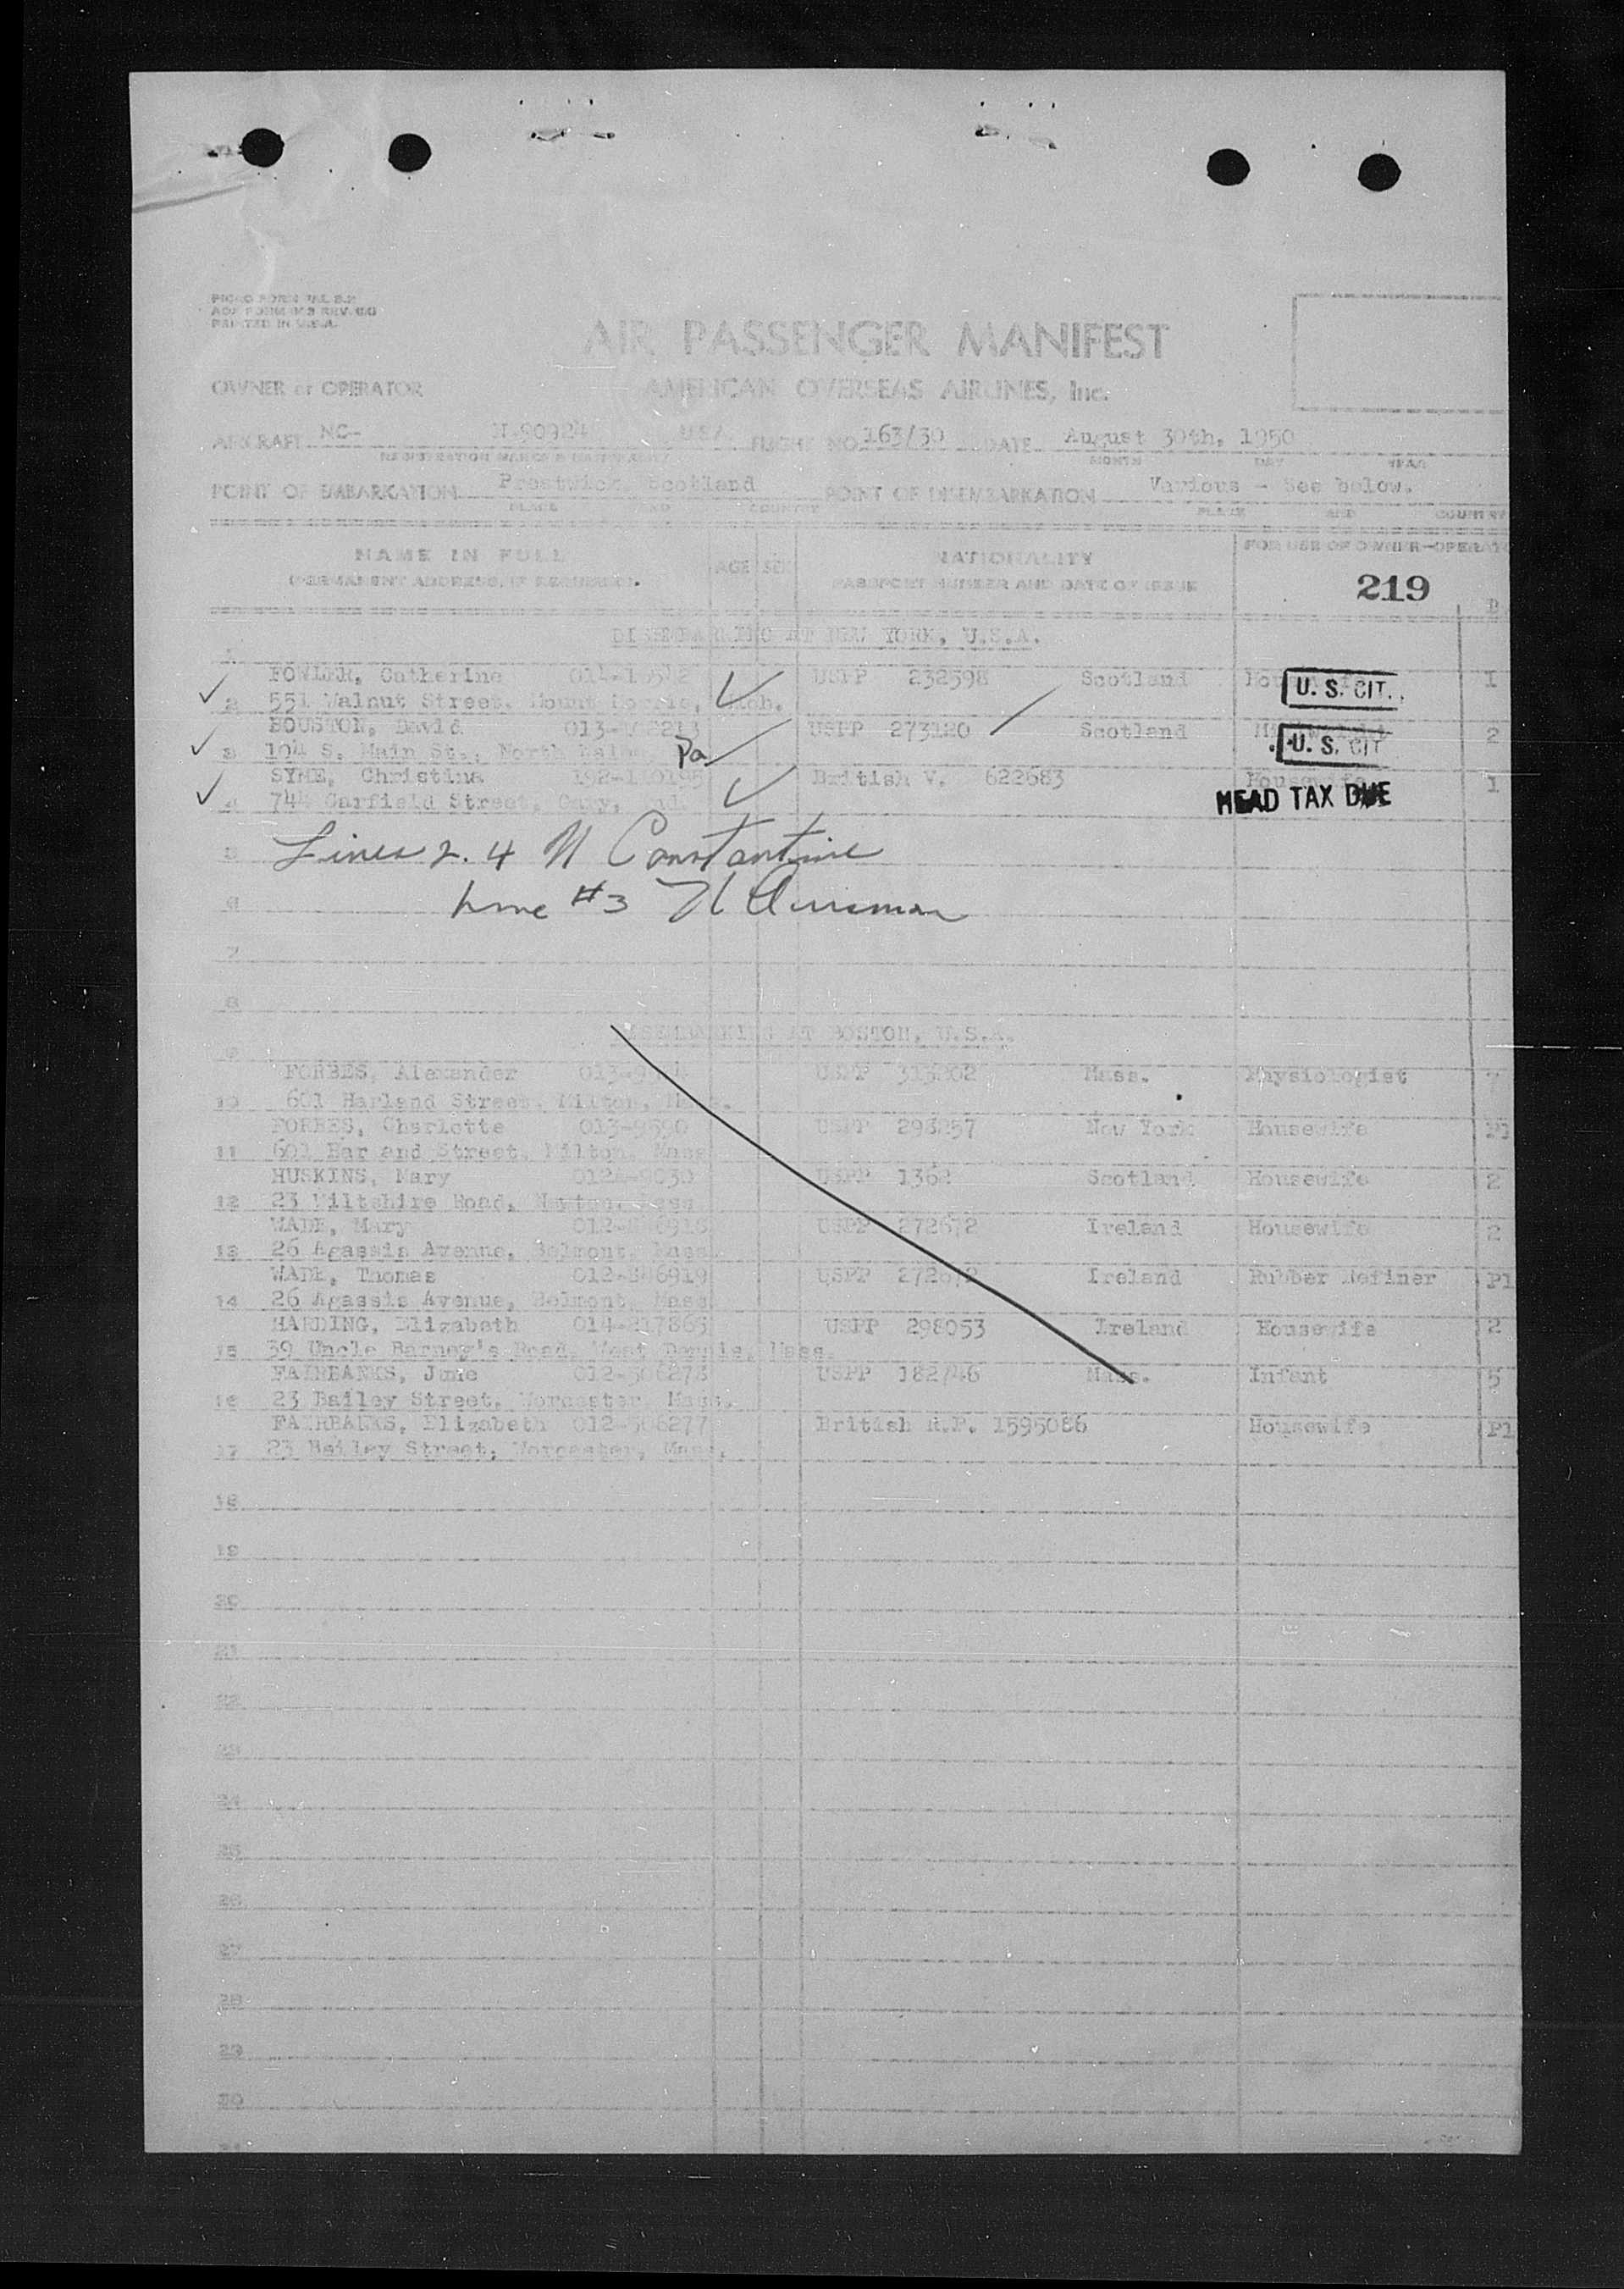 PRINTED IN U.S.A.
AIR PASSENGER MANIFEST
OWNER or OPERATOR AMERICAN OVERSEAS AIRLINES, Inc.
AIRCRAFT NC- N-90924 USA FLIGHT NO. 163/30 DATE August 30th, 1950
REGISTRATION MARKS & NATIONALITY MONTH DAY YEAR
POINT OF EMBARKATION Prestwick, Scotland POINT OF DISEMBARKATION Various - See below.
PLACE AND COUNTRY PLACE AND COUNTRY
NAME IN FULL AGE SEX NATIONALITY FOR USE OF OWNER-OPERATO
(PERMANENT ADDRESS, IF REQUIRED) PASSPORT NUMBER AND DATE OF ISSUE 219
DISEMBARKING AT NEW YORK, U.S.A.
1
FOWLER, Catherine USPP 232598 Scotland U. S. CIT. 1
2 551 Walnut Street, Mount Morris,
HOUSTON, David USPP 273120 Scotland U. S. CIT 2
3 194 S. Main St., North Pa
SYME, Christina British V. 622683 Housewife 1
4 744 Garfield Street, Gary, HEAD TAX DUE
5 Lines 2. 4 N Constantine
6 Line #3 N
7
8
DISEMBARKING AT BOSTON, U.S.A.
9
FORBES, Alexander USPP 313202 Mass. Physiologist
10 601 Harland Street, Milton, Mass.
FORBES, Charlotte 013-9590 USPP 298257 New York Housewife P1
11 601 Harland Street, Milton, Mass
HUSKINS, Mary 012A-9030 USPP 1362 Scotland Housewife 2
12 23 Wiltshire Road,
WADE, Mary USPP 272672 Ireland Housewife 2
13 26 Agassis Avenue, Belmont, Mass
WADE, Thomas USPP 272672 Ireland Rubber Refiner P1
14 26 Agassis Avenue, Belmont, Mass
HARDING, Elizabeth 014-217865 USPP 298053 Ireland Housewife 2
15 39 Uncle Barney's Road, West Dennis, Mass.
FAIRBANKS, June 012-506278 USPP 182746 Mass. Infant 5
16 23 Bailey Street, Worcester, Mass.
FAIRBANKS, Elizabeth 012-506277 British R.P. 1595086 Housewife P1
17 23 Bailey Street, Worcester, Mass.
18
19
20
21
22
23
24
25
26
27
28
29
30